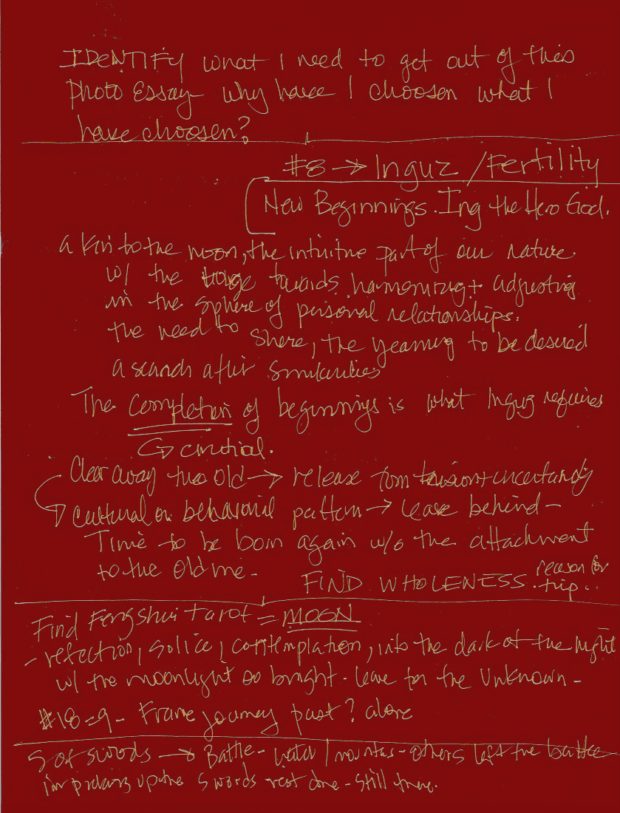 IDENTIFY what I need to get out of this
Photo Essay Why have I choosen what I
have choosen?
#8 → Inguz / Fertility
New Beginnings. Ing the Hero God.
a kin to the moon, the intuitive part of our nature.
w/ the towards harmonizing + adjusting
in the sphere of personal relationships.
the need to share, the yearning to be desired
a search after similarities
The completion of beginnings is what Inguz requires
crucial.
Clear away the old → release from tension + uncertainty
Cultural or behavioral pattern → leave behind -
Time to be born again w/o the attachment
to the old me - FIND WHOLENESS. reason for
trip..
Find Feng Shui tarot = MOON
- reflection, solice, contemplation, into the dark of the night
w/ the moonlight so bright. leave for the Unknown -
#18=9 - Frame journey past? alone
5 of swords → Battle - water / - others left the battle
im picking up the swords rest done - still there.